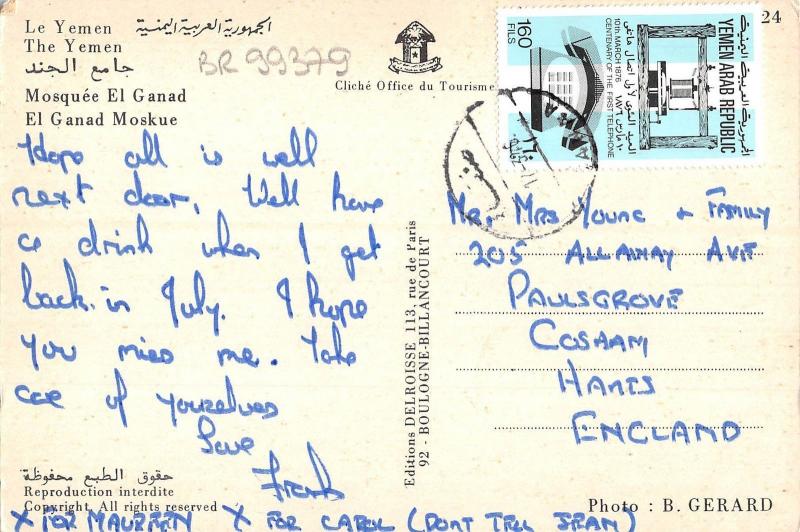 Le Yemen
The Yemen
الجمهورية العربية اليمنية
جامع الجند
Mosquée El Ganad
El Ganad Moskue
BR 99379
Cliché Office du Tourisme
24
160
FILS
10th. MARCH 1876
CENTENARY OF THE FIRST TELEPHONE
YEMEN ARAB REPUBLIC
Hope all is well
next door, Well have
a drink when I get
back in July. I hope
you miss me. Take
care of yourselves
Love
Frank
X FOR MAUREEN X FOR CAROL (DONT TELL JEAN)
Editions DELROISSE 113, rue de Paris
92 - BOULOGNE-BILLANCOURT
Mr. Mrs YOUNG + FAMILY
205 ALLAWAY AVE
PAULSGROVE
COSHAM
HANTS
ENGLAND
حقوق الطبع محفوظة
Reproduction interdite
Copyright. All rights reserved
Photo : B. GERARD